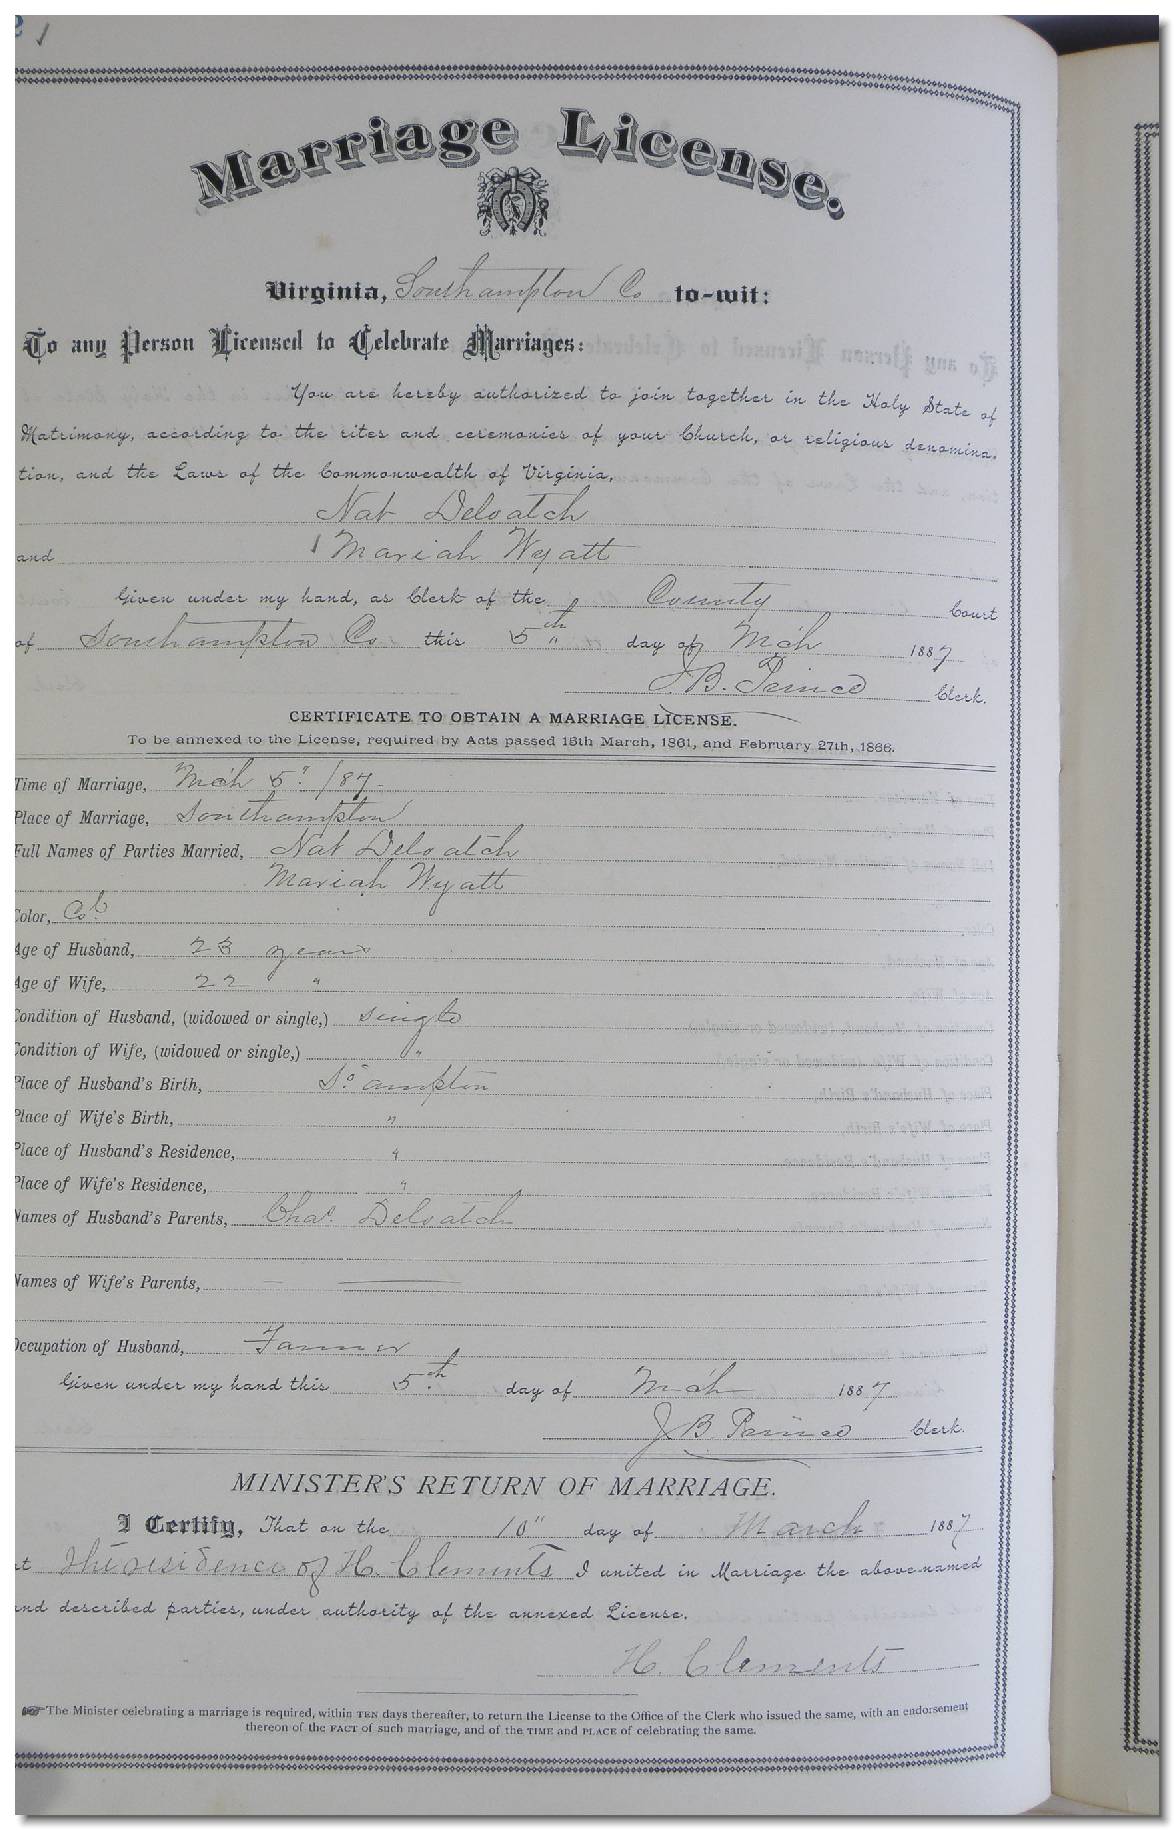 Marriage License.
Virginia, Southampton Co to-wit:
To any Person Licensed to Celebrate Marriages:
You are hereby authorized to join together in the Holy State of
Matrimony, according to the rites and ceremonies of your Church, or religious denomina-
tion, and the Laws of the Commonwealth of Virginia,
Nat Deloatch
and Mariah Wyatt
Given under my hand, as Clerk of the County Court
of Southampton Co this 5th day of Mch 1887
J B. Prince Clerk.
CERTIFICATE TO OBTAIN A MARRIAGE LICENSE.
To be annexed to the License, required by Acts passed 15th March, 1861, and February 27th, 1866.
Time of Marriage, Mch 5" /87
Place of Marriage, Southampton
Full Names of Parties Married, Nat Deloatch
Mariah Wyatt
Color, Col
Age of Husband, 23 years
Age of Wife, 22 "
Condition of Husband, (widowed or single,) single
Condition of Wife, (widowed or single,) "
Place of Husband's Birth, So ampton
Place of Wife's Birth, "
Place of Husband's Residence, "
Place of Wife's Residence, "
Names of Husband's Parents, Chas. Deloatch
Names of Wife's Parents,
Occupation of Husband, Farmer
Given under my hand this 5th day of Mch 1887
J B Prince Clerk.
MINISTER'S RETURN OF MARRIAGE.
I Certify, That on the 10" day of March 1887
at the residence of H. Clements I united in Marriage the above-named
and described parties, under authority of the annexed License.
H. Clements
The Minister celebrating a marriage is required, within TEN days thereafter, to return the License to the Office of the Clerk who issued the same, with an endorsement
thereon of the FACT of such marriage, and of the TIME and PLACE of celebrating the same.